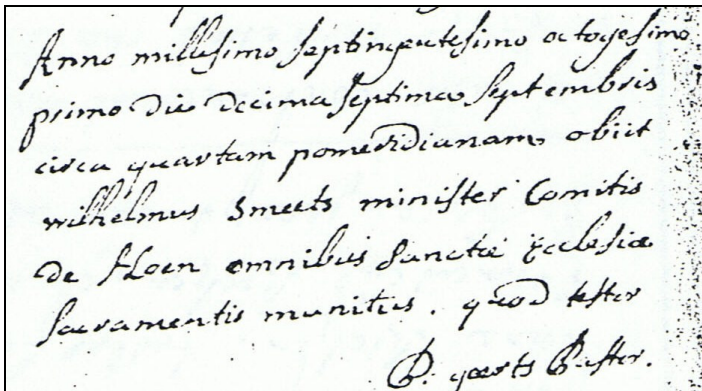 Anno millesimo septingentesimo octogesimo
primo die decima septima septembris
circa quartam pomeridianam obiit
wilhelmus Smeets minister Comitis
de Hoen omnibus Sanctæ Ecclesiæ
Sacramentis munitus. quod testor
P: